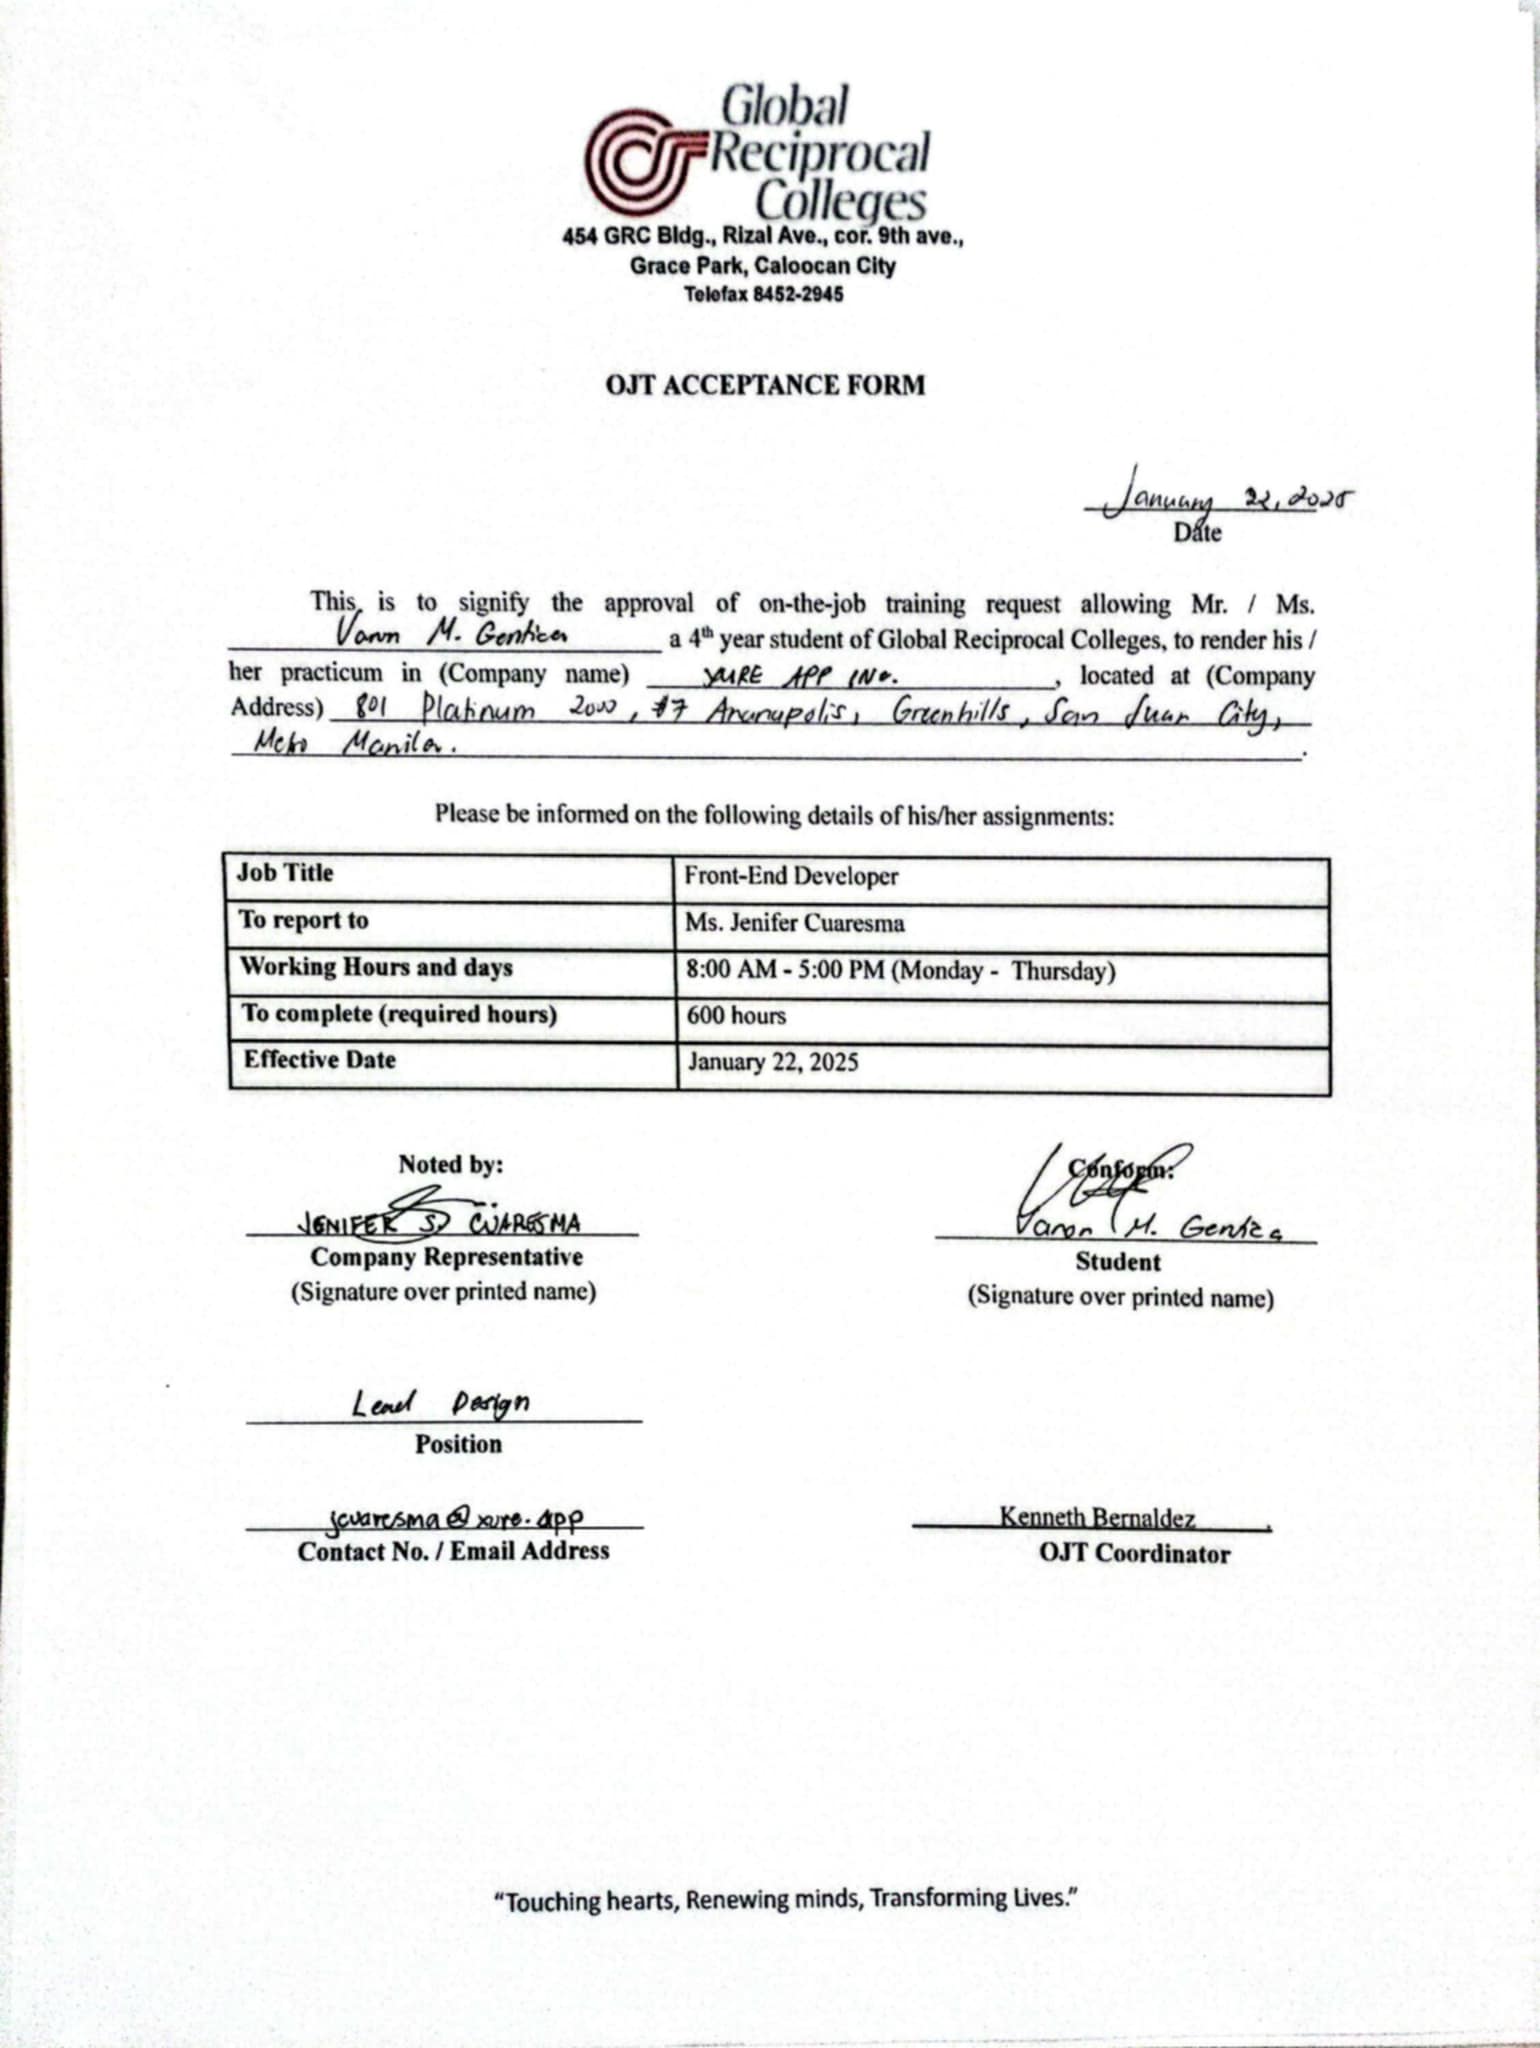 Global
Reciprocal
Colleges
454 GRC Bldg., Rizal Ave., cor. 9th ave.,
Grace Park, Caloocan City
Telefax 8452-2945
OJT ACCEPTANCE FORM
January 22, 2025
Date
This is to signify the approval of on-the-job training request allowing Mr. / Ms.
M. a 4th year student of Global Reciprocal Colleges, to render his /
her practicum in (Company name) XURE APP INC. , located at (Company
Address) 801 Platinum 2000, #7 Greenhills, San Juan City,
Metro Manila. .
Please be informed on the following details of his/her assignments:
Job Title Front-End Developer
To report to Ms. Jenifer Cuaresma
Working Hours and days 8:00 AM - 5:00 PM (Monday - Thursday)
To complete (required hours) 600 hours
Effective Date January 22, 2025
Noted by: Conform:
JENIFER S. CUARESMA M.
Company Representative Student
(Signature over printed name) (Signature over printed name)
Lead Design
Position
jcuaresma@xure.app Kenneth Bernaldez
Contact No. / Email Address OJT Coordinator
“Touching hearts, Renewing minds, Transforming Lives.”